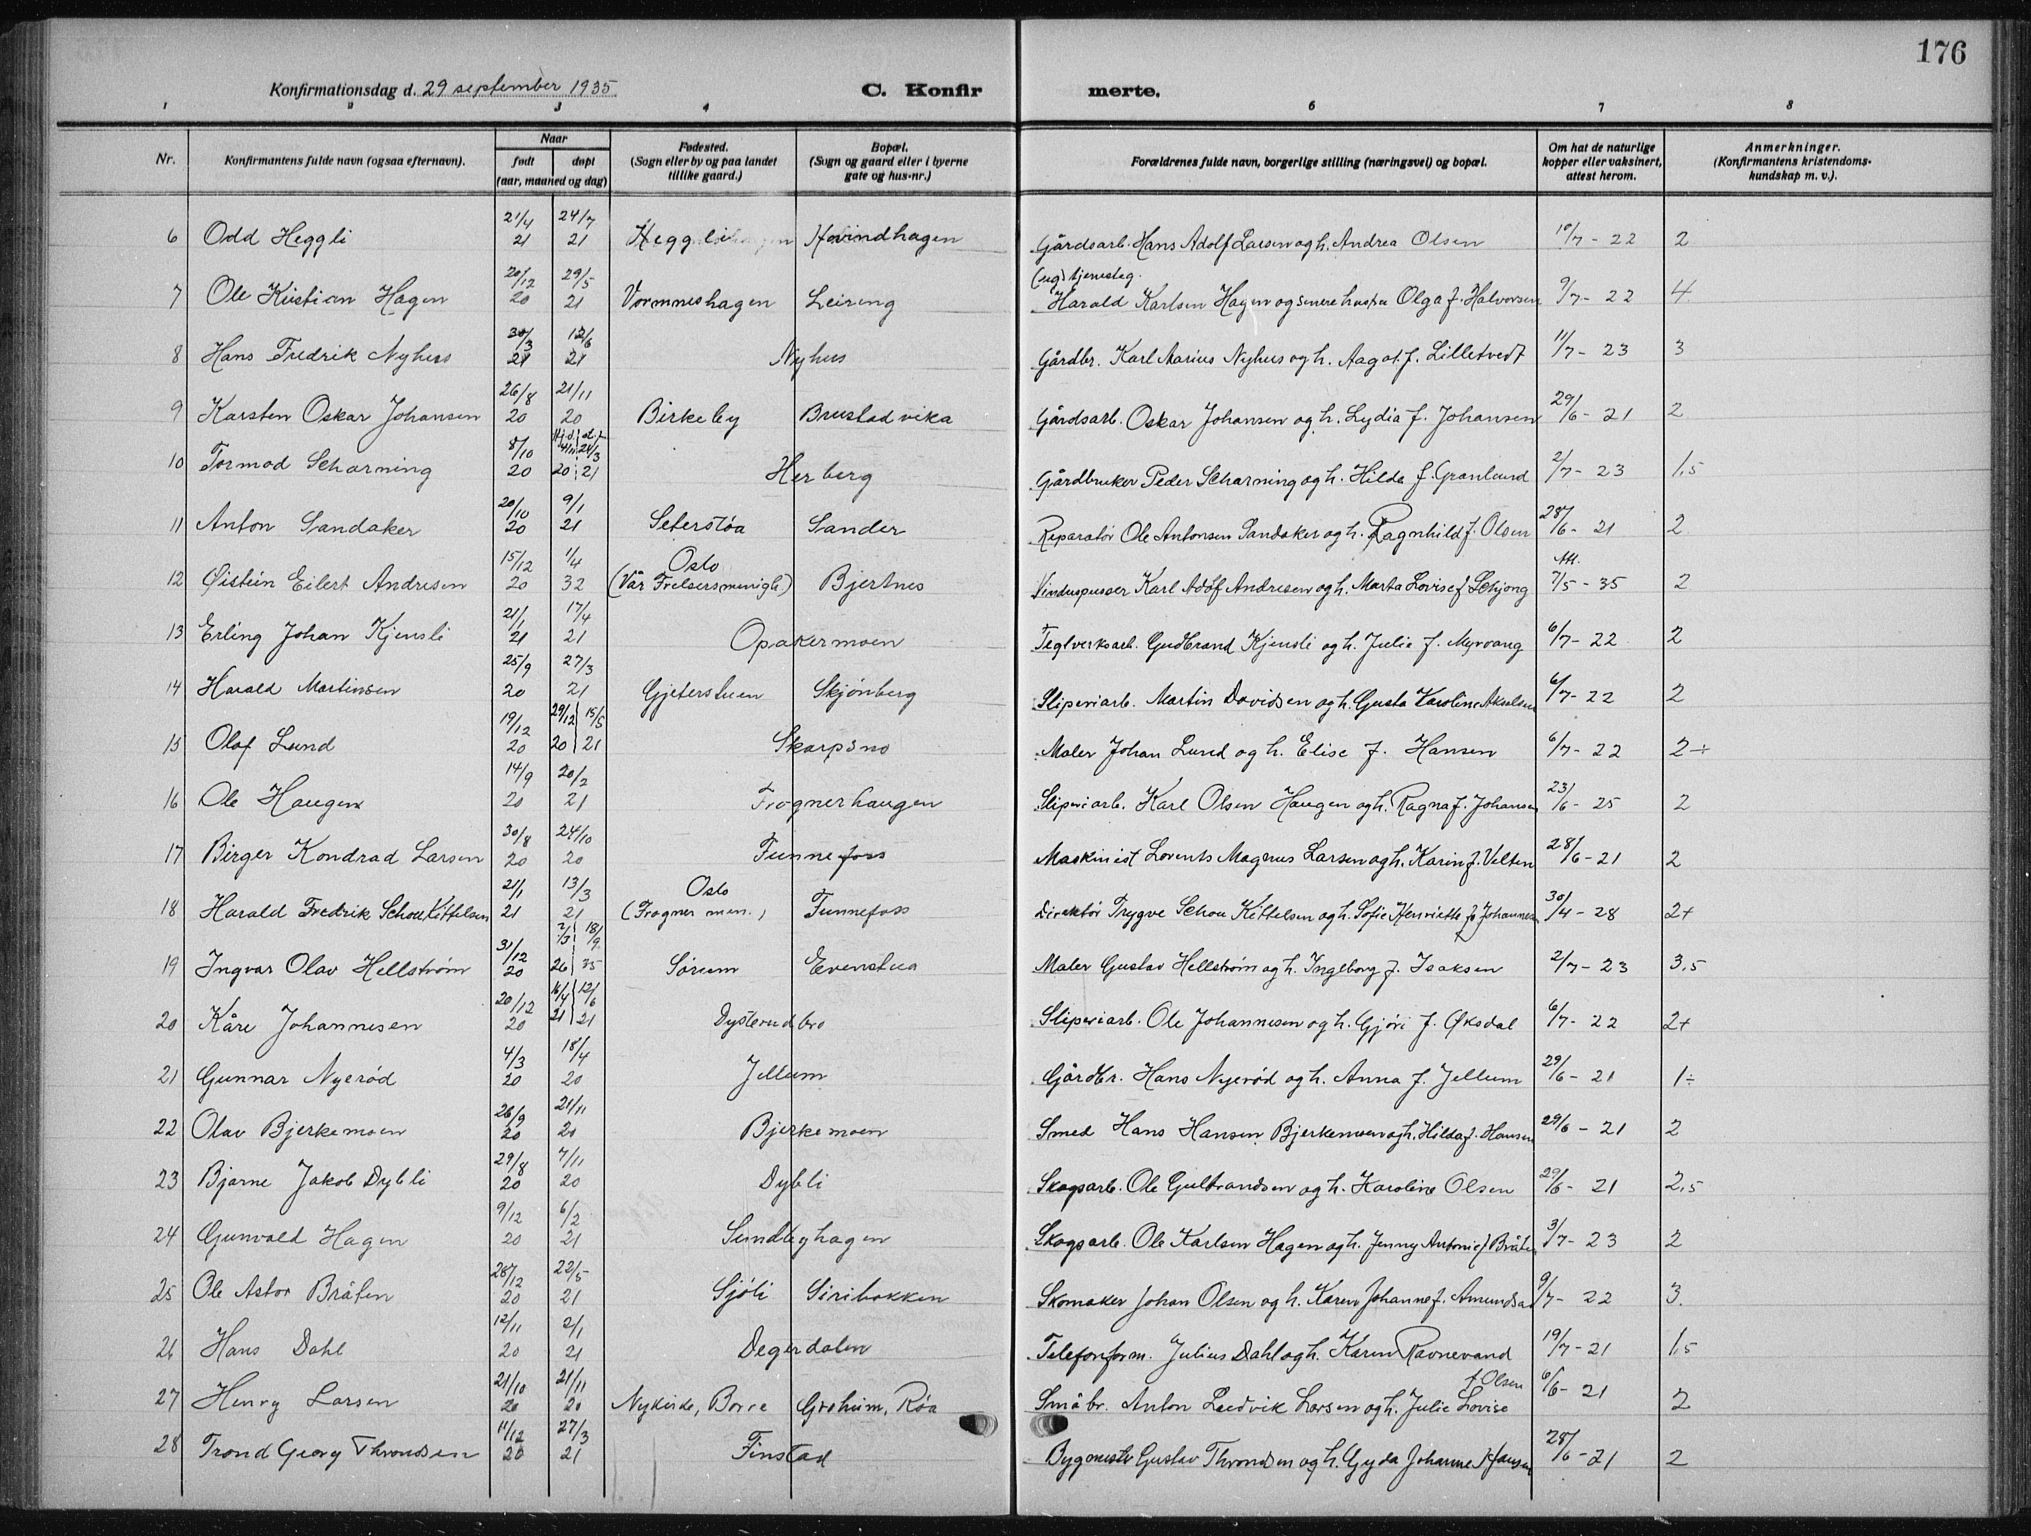 176
Konfirmationsdag d. 29 september 1935. C. Konfirmerte.
1 2 3 4 6 7 8
Nr. Konfirmantens fulde navn (ogsaa efternavn). Naar født døpt (aar, maaned og dag) Fødested. (Sogn eller by og paa landet tillike gaard.) Bopæl. (Sogn og gaard eller i byerne gate og hus-nr.) Forældrenes fulde navn, borgerlige stilling (næringsvei) og bopæl. Om hat de naturlige kopper eller vaksinert, attest herom. Anmerkninger. (Konfirmantens kristendoms-kundskap m. v.).
6 Odd Heggli 21/4 21 24/7 21 Hovindhagen Gårdsarb. Hans Adolf Larsen og h. Andrea Olsen 10/7 - 22 2
7 Ole Kristian Hagen 20/12 20 29/5 21 Vormneshagen Leireng (ug) tjenesteg. Harald Karlsen Hagen og senere hustru Olga f. Halvorsen 9/7 - 22 4
8 Hans Fredrik Nyhus 30/3 21 12/6 21 Nyhus Gårdbr. Karl Marius Nyhus og h. Aagot f. Lilletvedt 11/7 - 23 3
9 Karsten Oskar Johansen 26/8 20 21/11 20 Birkeby Brustadvika Gårdsarb. Oskar Johansen og h. Lydia f. Johansen 29/6 - 21 2
10 Tormod Scharning 8/10 20 Hj.d. 4/11 20 st.f. 28/3 21 Herberg Gårdbruker Peder Scharning og h. Hilda f. Granlund 2/7 - 23 1,5
11 Anton Sandaker 20/10 20 9/1 21 Seterstøa Sander Reparatør Ole Antonsen Sandaker og h. Ragnhild f. Olsen 28/6 - 21 2
12 Øistein Eilert Andresen 15/12 20 1/4 32 Oslo (Vår Frelsersmenigh.) Bjertnes Vinduspusser Karl Adolf Andresen og h. Marta Lovise f. Schjong Att. 7/5 - 35 2
13 Erling Johan Kjensli 21/1 21 17/4 21 Opakermoen Teglverksarb. Gudbrand Kjensli og h. Julie f. Myrvang 6/7 - 22 2
14 Harald Martinsen 25/9 20 27/3 21 Gjeterstuen Skjønberg Sliperiarb. Martin Davidsen og h. Gusta Karoline Akselsen 6/7 - 22 2
15 Olaf Lund 19/12 20 29/12 20 15/5 21 Skarpsno Maler Johan Lund og h. Elise f. Hansen 6/7 - 22 2÷
16 Ole Haugen 14/9 20 20/2 21 Frognerhaugen Sliperiarb. Karl Olsen Haugen og h. Ragna f. Johansen 23/6 - 25 2
17 Birger Kondrad Larsen 30/8 20 24/10 20 Funnefoss Maskinist Lorents Magnus Larsen og h. Karin f. Velten 28/6 - 21 2
18 Harald Fredrik Schou Kittelsen 21/1 21 13/3 21 Oslo (Frogner men.) Funnefoss Direktör Trygve Schou Kittelsen og h. Sofie Henriette f. Johannesen 30/4 - 28 2+
19 Ingvar Olav Hellstrøm 31/12 20 7/3 26 18/9 35 Sørum Evenstua Maler Gustav Hellstrøm og h. Ingeborg f. Isaksen 2/7 - 23 3,5
20 Kåre Johannesen 20/12 20 16/4 21 12/6 21 Dysterudbro Sliperiarb. Ole Johannesen og h. Gjøri f. Øksdal 6/7 - 22 2+
21 Gunnar Nyerød 4/3 20 18/4 20 Jellum Gårdbr. Hans Nyerød og h. Anna f. Jellum 29/6 - 21 1÷
22 Olav Bjerkemoen 26/9 20 21/11 20 Bjerkemoen Smed Hans Hansen Bjerkemoen og h. Hilda f. Hansen 29/6 - 21 2
23 Bjarne Jakob Dybli 29/8 20 7/11 20 Dybli Skogsarb. Ole Gulbrandsen og h. Karoline Olsen 29/6 - 21 2,5
24 Gunvald Hagen 9/12 20 6/2 21 Sundbyhagen Skogsarb. Ole Karlsen Hagen og h. Jenny Antonie f. Bråten 3/7 - 23 2
25 Ole Astor Bråten 28/12 20 22/5 21 Sjøli Siribakken Skomaker Johan Olsen og h. Karen Johanne f. Amundsen 9/7 - 22 3.
26 Hans Dahl 12/11 20 2/1 21 Degerdalen Telefonform. Julius Dahl og h. Karen Ravnevand 19/7 - 21 1,5
27 Henry Larsen 21/10 20 21/11 20 Nykirke, Borre Groheim, Røa Småbr. Anton Ludvik Larsen og h. Julie Lovise f. Olsen 6/6 - 21 2
28 Trond Georg Throndsen 11/12 20 27/3 21 Finstad Bygmester Gustav Throndsen og h. Gyda Johanne Hansen 28/6 - 21 2